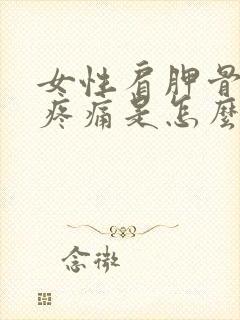 女性肩胛骨
疼痛是怎麼
念微